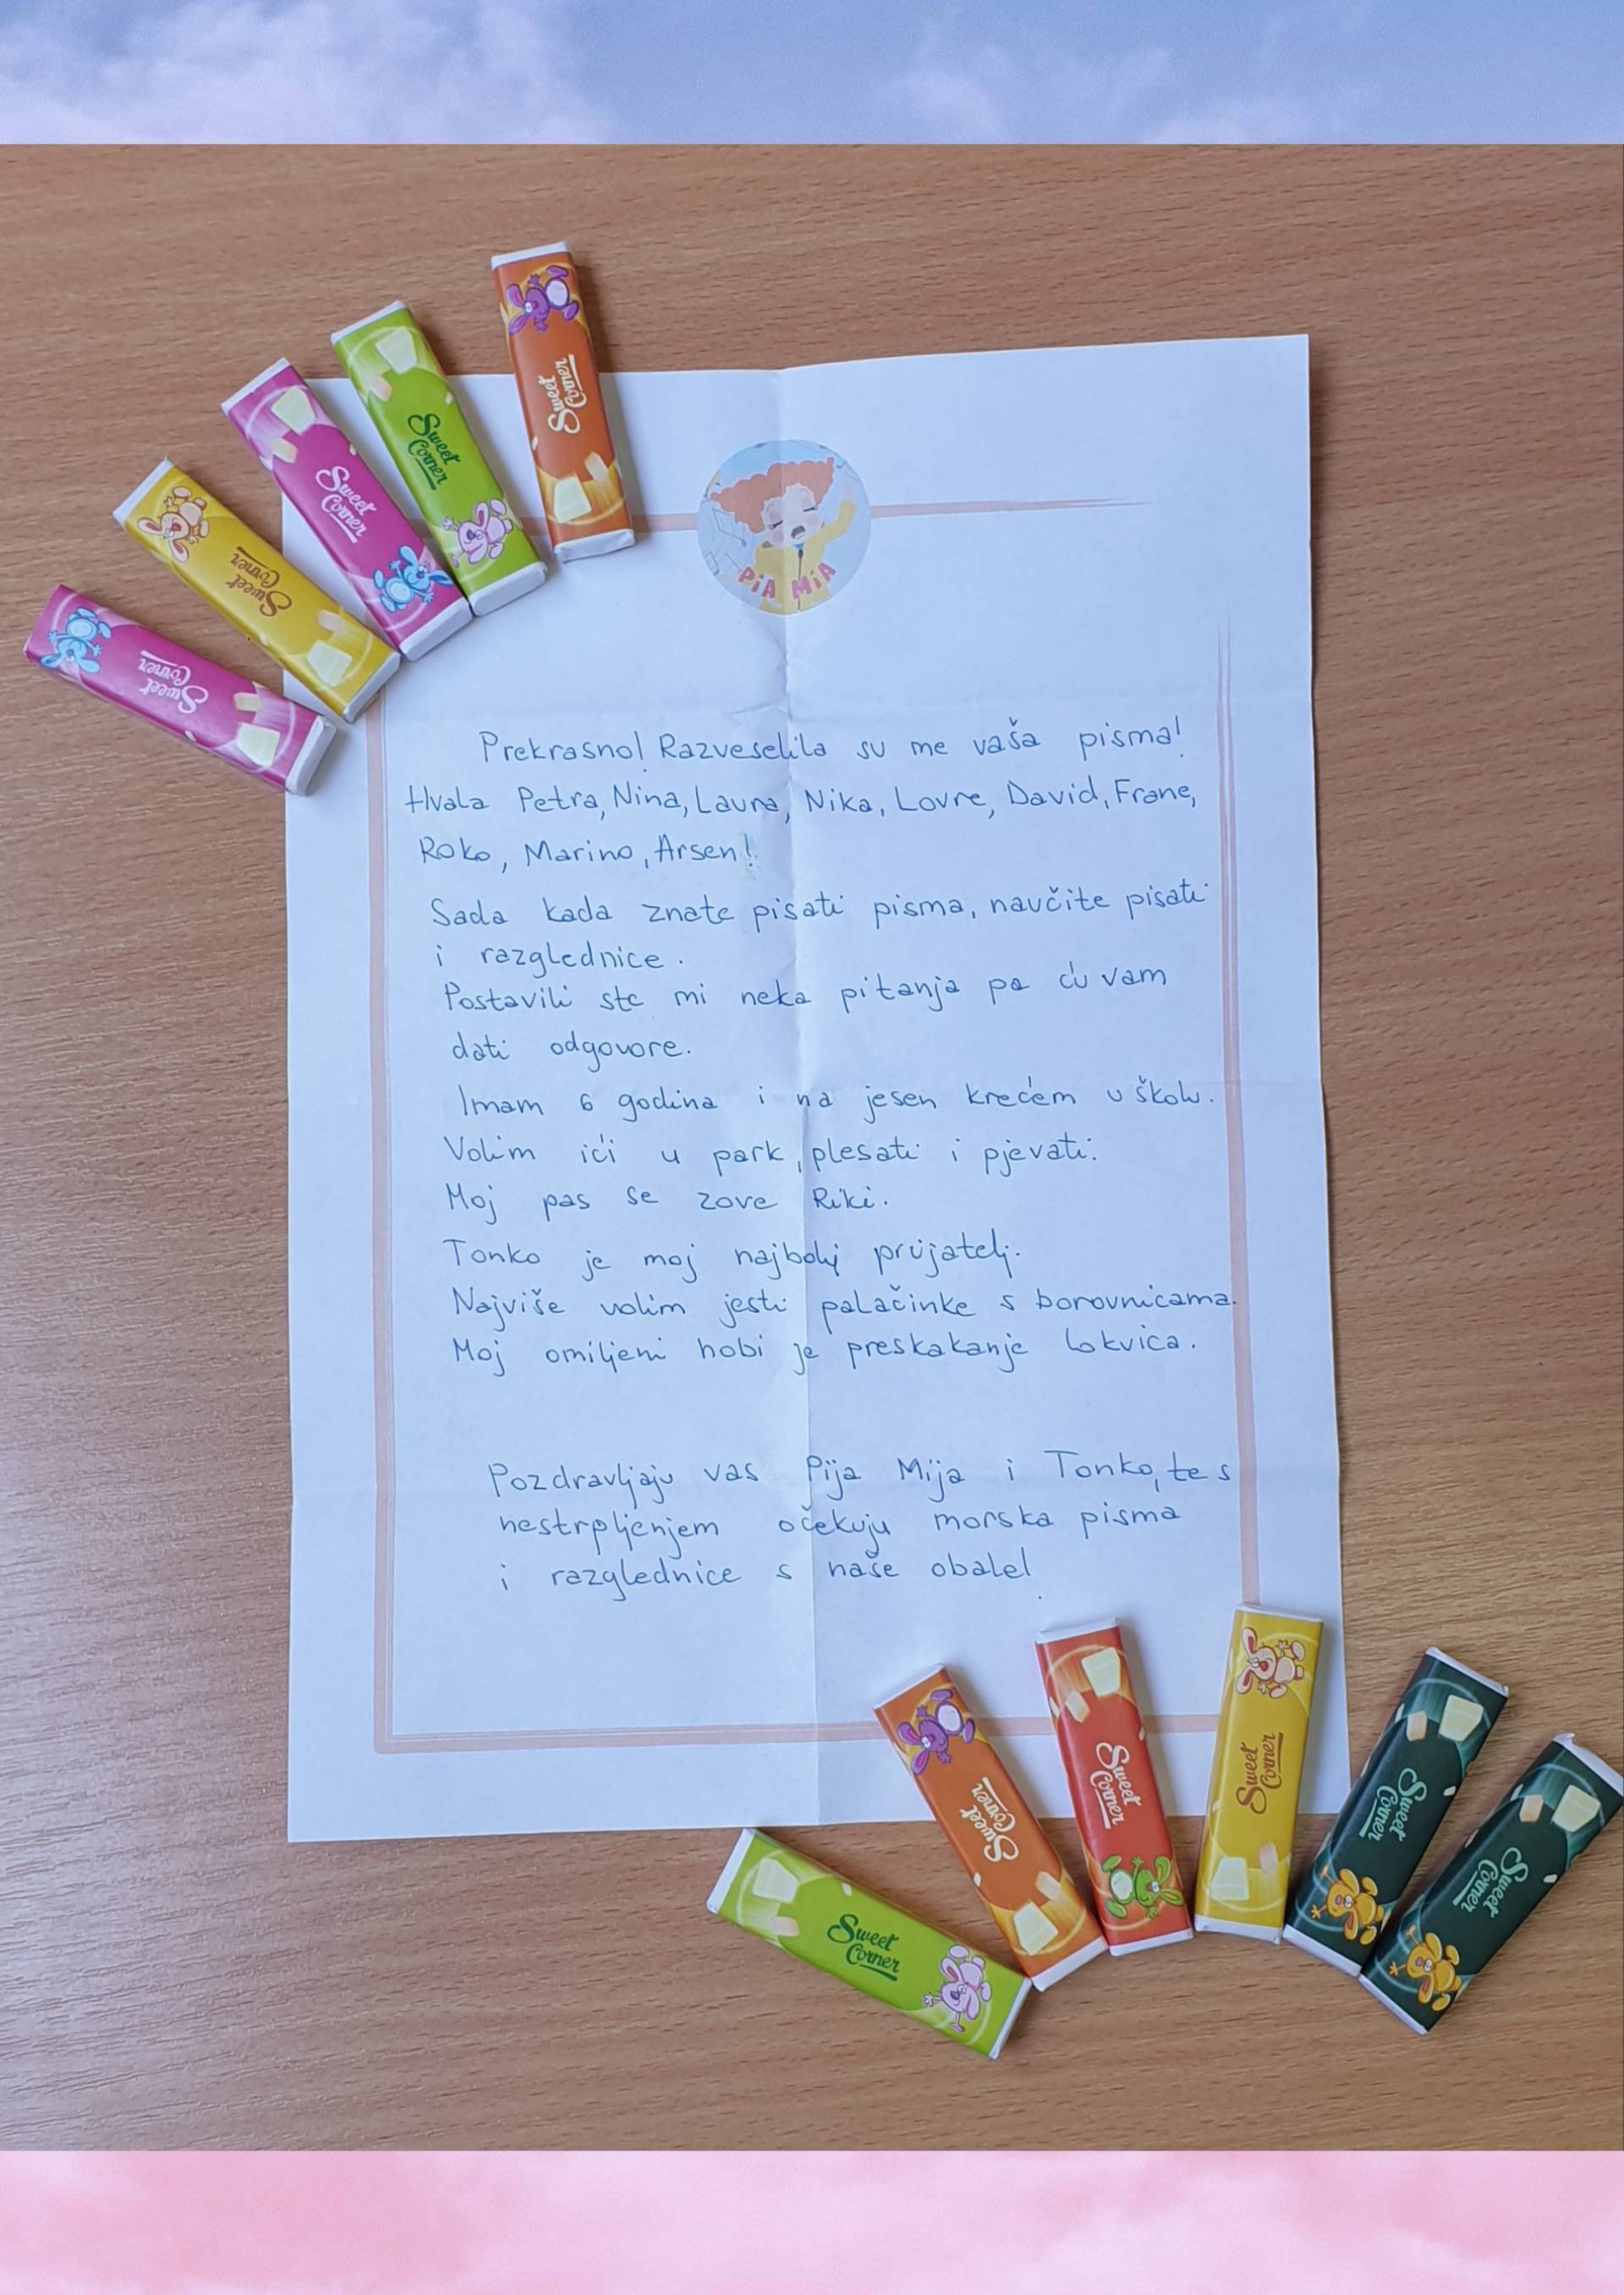 Sweet Corner
Sweet Corner
Sweet Corner
Sweet Corner
Sweet Corner
PIA MIA
Prekrasno! Razveselila su me vaša pisma!
Hvala Petra, Nina, Laura, Nika, Lovre, David, Frane,
Roko, Marino, Arsen!
Sada kada znate pisati pisma, naučite pisati
i razglednice.
Postavili ste mi neka pitanja pa ću vam
dati odgovore.
Imam 6 godina i na jesen krećem u školu.
Volim ići u park, plesati i pjevati.
Moj pas se zove Riki.
Tonko je moj najbolji prijatelj.
Najviše volim jesti palačinke s borovnicama.
Moj omiljeni hobi je preskakanje lokvica.
Pozdravljaju vas Pija Mija i Tonko, te s
nestrpljenjem očekuju morska pisma
i razglednice s naše obale!
Sweet Corner
Sweet Corner
Sweet Corner
Sweet Corner
Sweet Corner
Sweet Corner